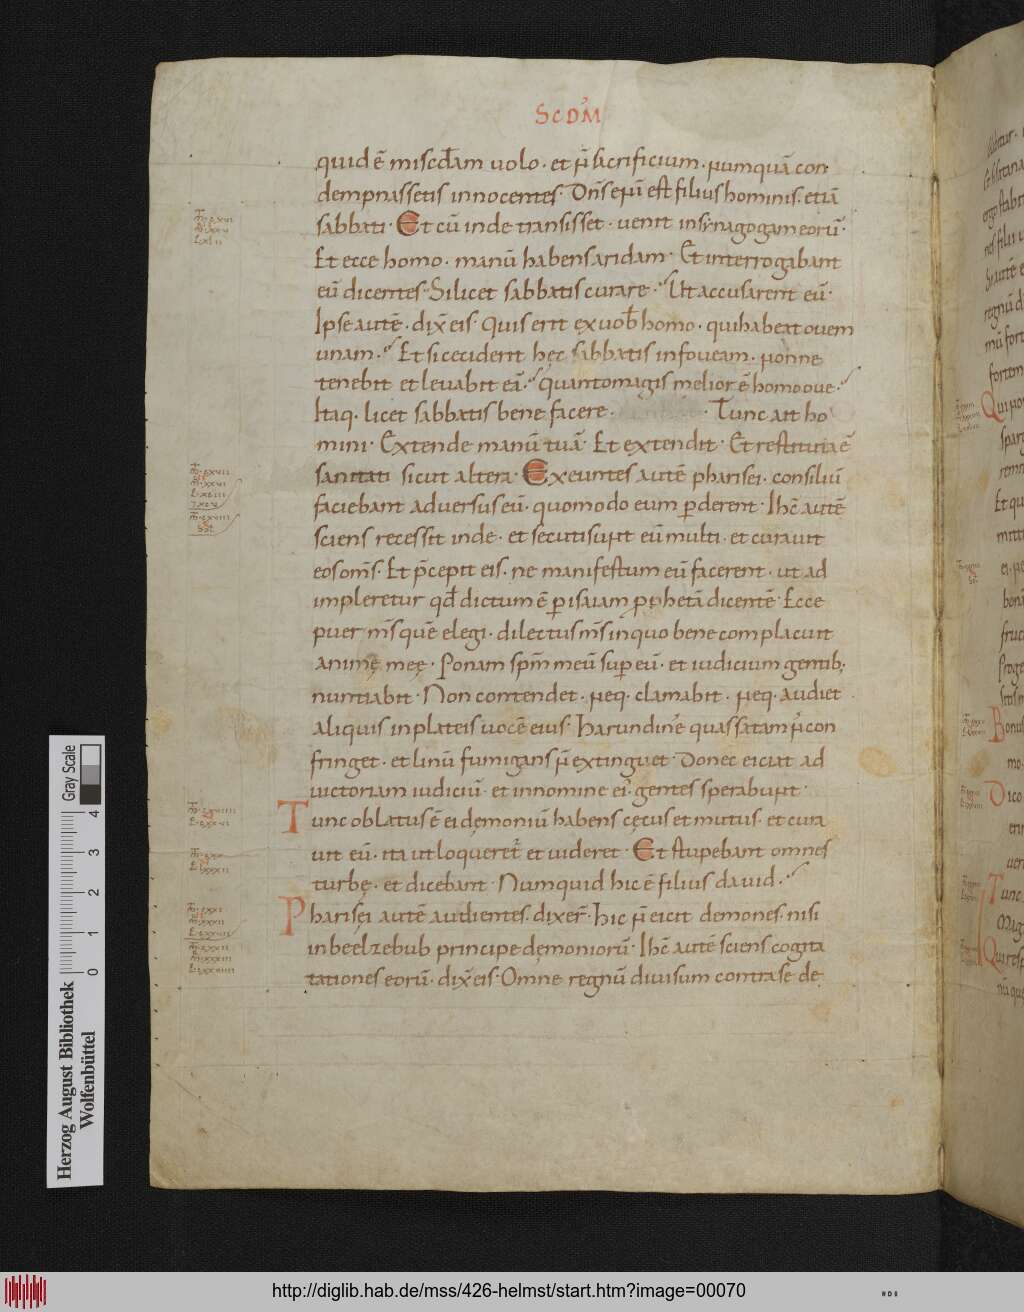 SCDM
quid ē misc̄dam uolo · et n̄ sacrificium · numquā con
dempnassetis innocentes · Dn̄s enī est filius hominis · etiā
sabbati · Et cū inde transisset · uenit in synagogam eorū ·
Et ecce homo · manū habens aridam · Et interrogabant
eū dicentes · Si licet sabbatis curare · Ut accusarent eū ·
Ipse autē · dix̄ eis · Quis erit ex uob̄ homo · qui habeat ouem
unam · Et si ceciderit hęc sabbatis in foueam · nonne
tenebit et leuabit eā · quanto magis melior ē homo oue ·
Itaq · licet sabbatis bene facere · Tunc ait ho
mini · Extende manū tuā · Et extendit · Et restituta ē
sanitati sicut altera · Exeuntes autē pharisei · consiliū
faciebant aduersus eū · quomodo eum ꝑderent · Ihc̄ autē
sciens recessit inde · et secuti sunt eū multi · et curauit
eos om̄s · Et p̄cepit eis · ne manifestum eū facerent · ut ad
impleretur qd̄ dictum ē ꝑ isaiam ꝓphetā dicentē · Ecce
puer m̄s quē elegi · dilectus m̄s in quo bene complacuit
animę meę · Ponam spm̄ meū suꝑ eū · et iudicium gentib;
nuntiabit · Non contendet · neq · clamabit · neq · audiet
aliquis in plateis uocē eius · Harundinē quassatam n̄ con
fringet · et linū fumigans n̄ extinguet · Donec eiciat ad
uictoriam iudiciū · et in nomine ei · gentes sperabunt ·
Tunc oblatus ē ei dęmoniū habens cęcus et mutus · et cura
uit eū · ita ut loqueret̄ et uideret · Et stupebant omnes
turbę · et dicebant · Numquid hic ē filius dauid ·
Pharisęi autē audientes · dixer̄ · Hic n̄ eicit demones · nisi
in beelzebub principe dęmoniorū · Ihc̄ autē sciens cogita
tationes eorū · dix̄ eis · Omne regnū diuisum contra se de
Herzog August Bibliothek
Wolfenbüttel
0 1 2 3 4
Gray Scale
http://diglib.hab.de/mss/426-helmst/start.htm?image=00070